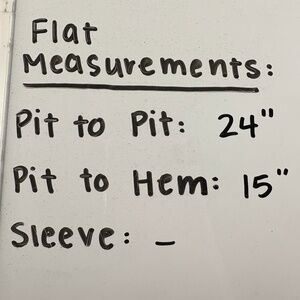 Flat
Measurements:
Pit to Pit: 24"
Pit to Hem: 15"
Sleeve: –